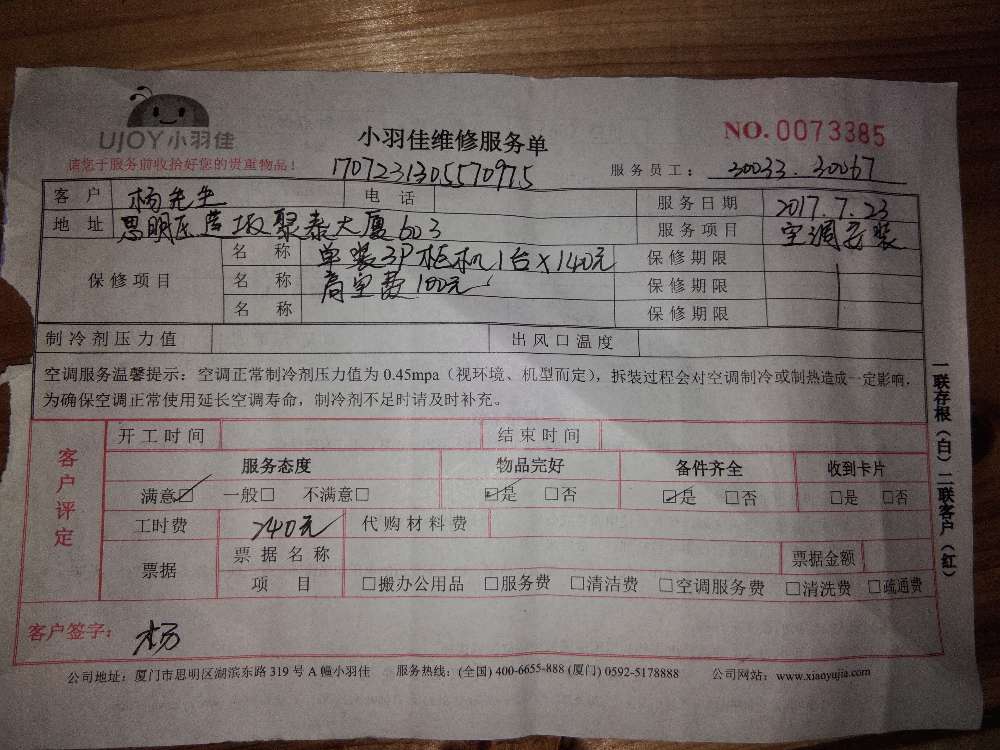 UJOY小羽佳
小羽佳维修服务单
NO. 0073385
请您于服务前收拾好您的贵重物品！
1707231305570975
服务员工： 30033. 30067
客 户 杨先生 电 话 服务日期 2017.7.23
地 址 思明区 聚泰大厦603 服务项目 空调安装
保修项目 名 称 单装3P柜机1台×140元 保修期限
名 称 高空费100元 保修期限
名 称 保修期限
制冷剂压力值 出风口温度
空调服务温馨提示：空调正常制冷剂压力值为 0.45mpa（视环境、机型而定），拆装过程会对空调制冷或制热造成一定影响，
为确保空调正常使用延长空调寿命，制冷剂不足时请及时补充。
客户评定
开工时间 结束时间
服务态度 物品完好 备件齐全 收到卡片
满意☑ 一般□ 不满意□ ☑是 □否 ☑是 □否 □是 □否
工时费 240元 代购材料费
票据 票据名称 票据金额
项 目 □搬办公用品 □服务费 □清洁费 □空调服务费 □清洗费 □疏通费
客户签字： 杨
公司地址：厦门市思明区湖滨东路 319 号 A 幢小羽佳 服务热线：(全国) 400-6655-888 (厦门) 0592-5178888 公司网站：www.xiaoyujia.com
一联存根（白）二联客户（红）